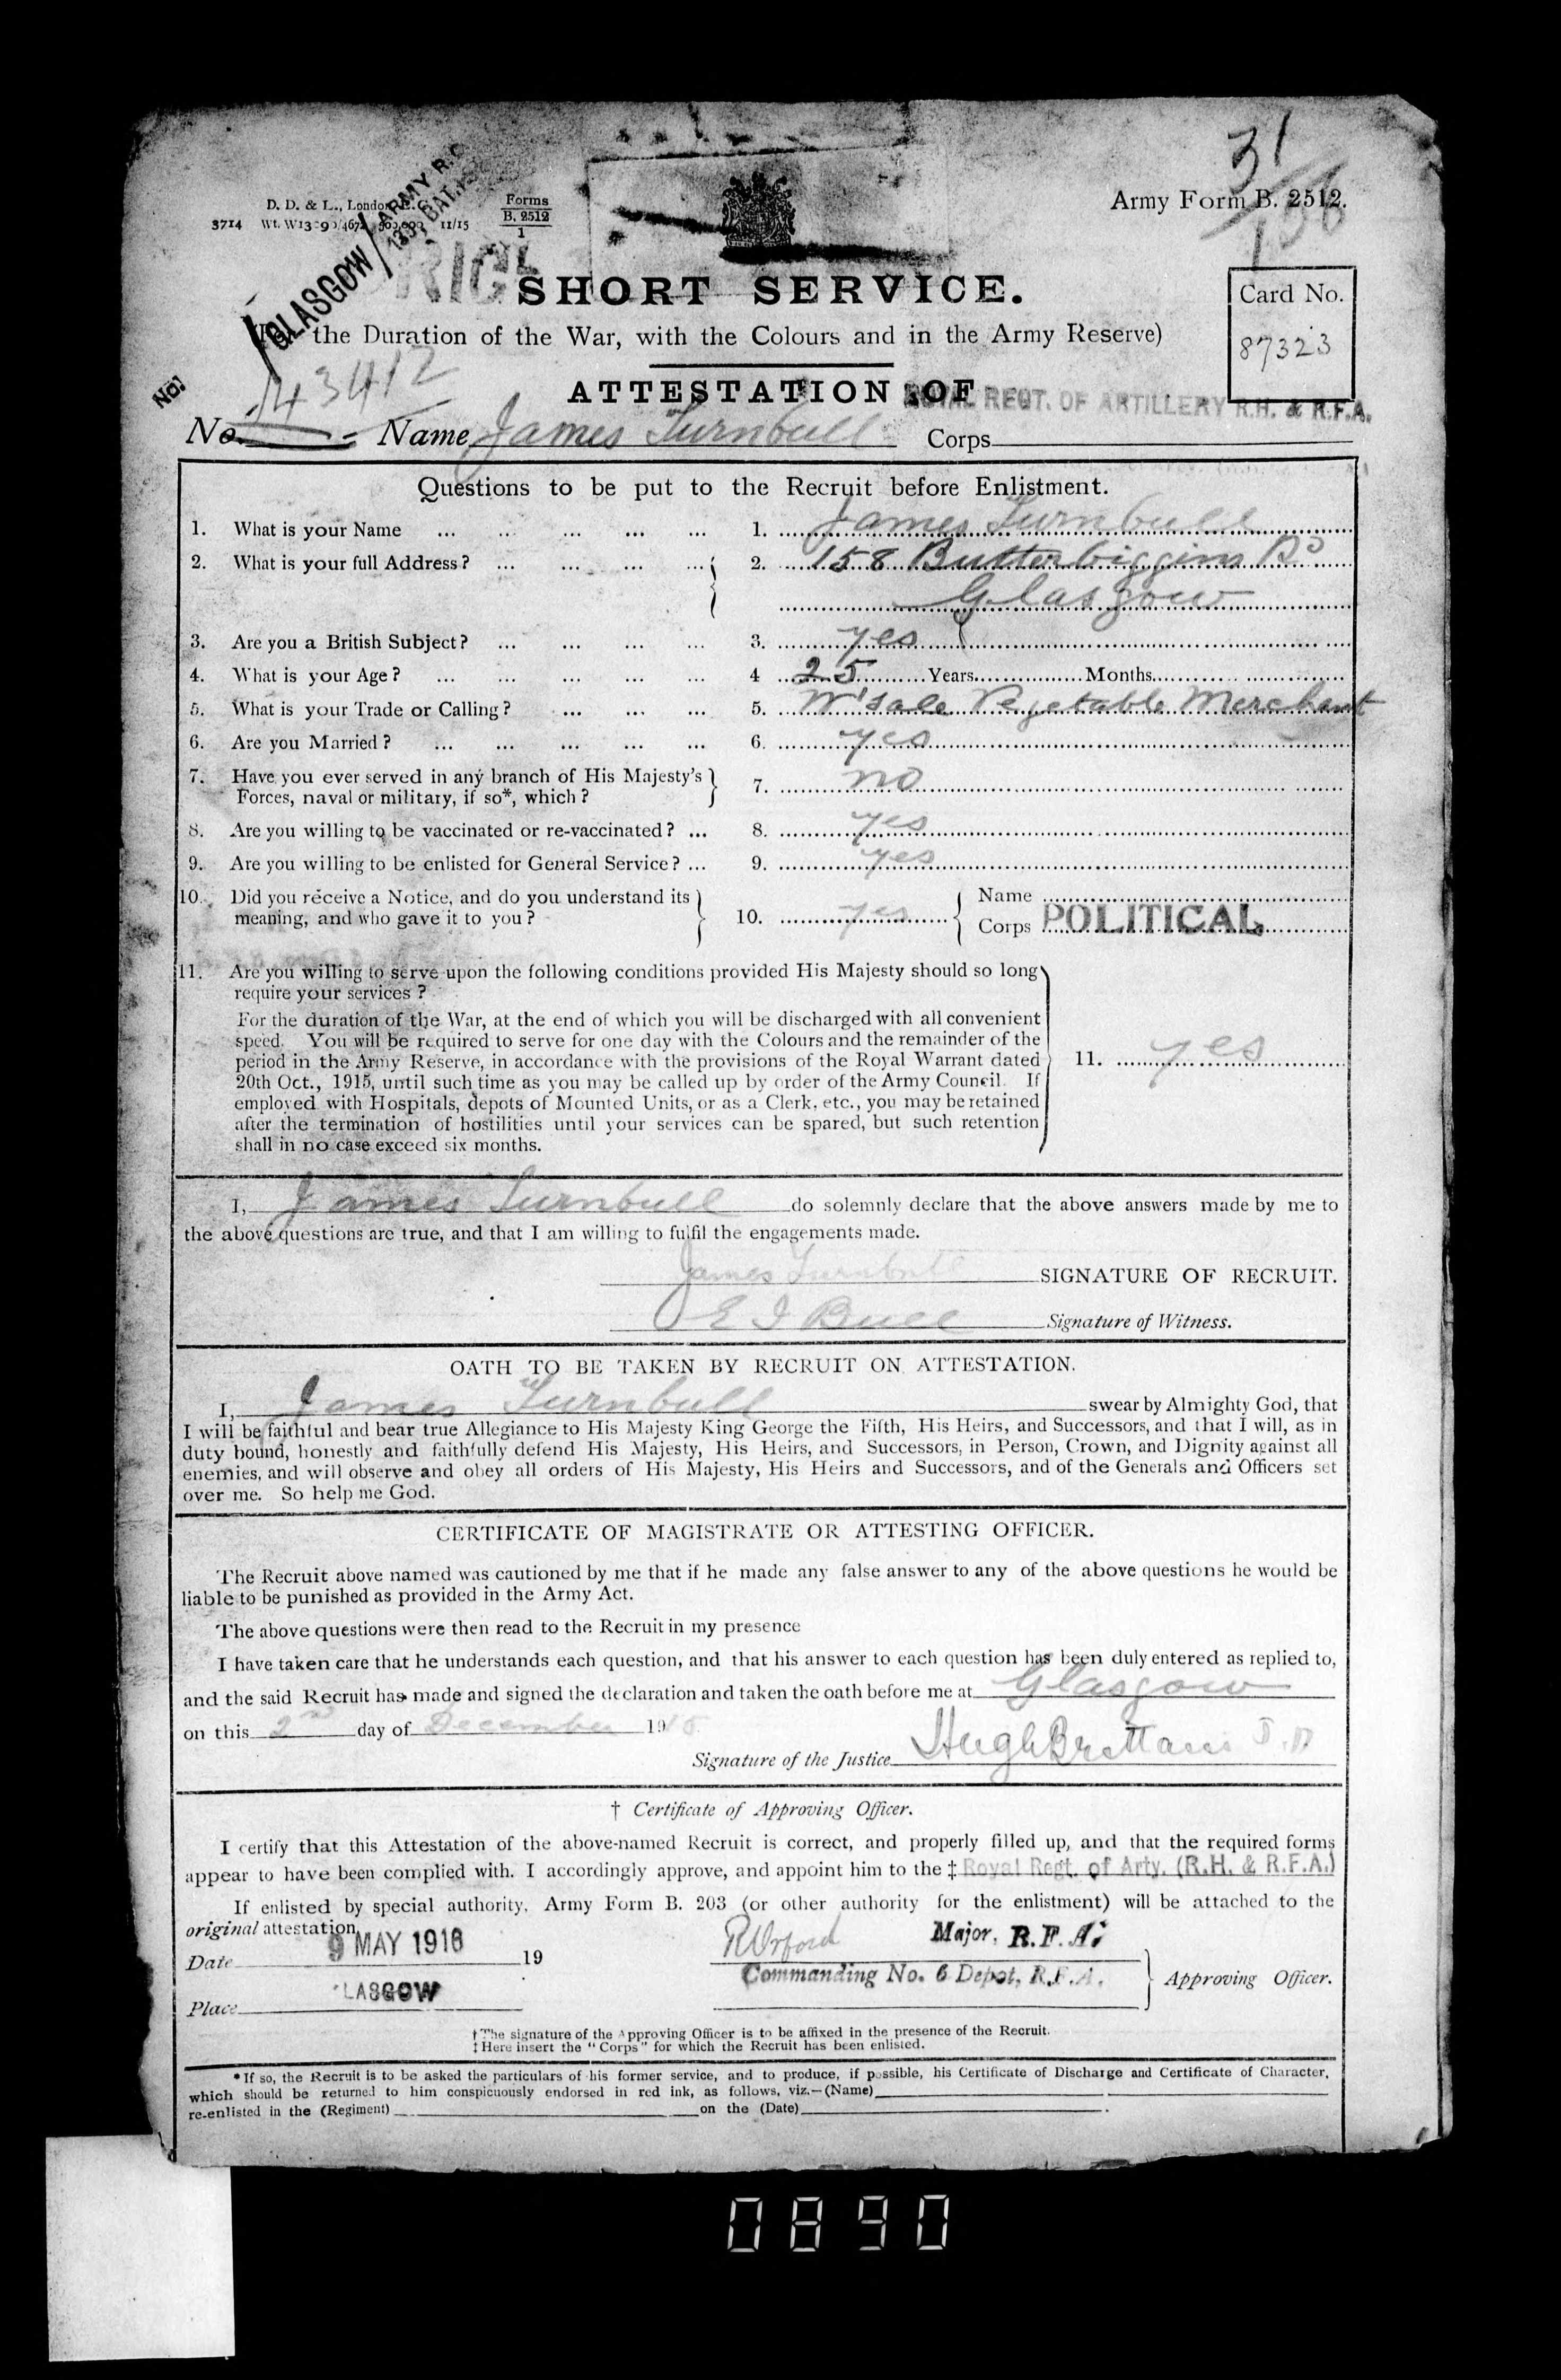 31
D. D. & L., London, E.C.
Forms
B. 2512
1
Army Form B. 2512.
3714 Wt. 11/15
GLASGOW / ARMY
SHORT SERVICE.
Card No.
87323
the Duration of the War, with the Colours and in the Army Reserve)
No.
143412
ATTESTATION OF
ROYAL REGT. OF ARTILLERY R.H. & R.F.A.
No. Name James Turnbull Corps
Questions to be put to the Recruit before Enlistment.
1. What is your Name ... ... ... ... ... 1. James Turnbull
2. What is your full Address? ... ... ... ... 2. 158 Butterbiggins Rd
Glasgow
3. Are you a British Subject? ... ... ... ... 3. yes
4. What is your Age? ... ... ... ... ... 4 25 Years Months
5. What is your Trade or Calling? ... ... ... 5. W'sale Vegetable Merchant
6. Are you Married? ... ... ... ... ... 6. yes
7. Have you ever served in any branch of His Majesty's
Forces, naval or military, if so*, which? 7. no
8. Are you willing to be vaccinated or re-vaccinated? ... 8. yes
9. Are you willing to be enlisted for General Service? ... 9. yes
10. Did you receive a Notice, and do you understand its
meaning, and who gave it to you? 10. yes
Name
Corps POLITICAL
11. Are you willing to serve upon the following conditions provided His Majesty should so long
require your services?
For the duration of the War, at the end of which you will be discharged with all convenient
speed. You will be required to serve for one day with the Colours and the remainder of the
period in the Army Reserve, in accordance with the provisions of the Royal Warrant dated
20th Oct., 1915, until such time as you may be called up by order of the Army Council. If
employed with Hospitals, depots of Mounted Units, or as a Clerk, etc., you may be retained
after the termination of hostilities until your services can be spared, but such retention
shall in no case exceed six months.
11. yes
I, James Turnbull do solemnly declare that the above answers made by me to
the above questions are true, and that I am willing to fulfil the engagements made.
James Turnbull SIGNATURE OF RECRUIT.
E J Bull Signature of Witness.
OATH TO BE TAKEN BY RECRUIT ON ATTESTATION.
I, James Turnbull swear by Almighty God, that
I will be faithful and bear true Allegiance to His Majesty King George the Fifth, His Heirs, and Successors, and that I will, as in
duty bound, honestly and faithfully defend His Majesty, His Heirs, and Successors, in Person, Crown, and Dignity against all
enemies, and will observe and obey all orders of His Majesty, His Heirs and Successors, and of the Generals and Officers set
over me. So help me God.
CERTIFICATE OF MAGISTRATE OR ATTESTING OFFICER.
The Recruit above named was cautioned by me that if he made any false answer to any of the above questions he would be
liable to be punished as provided in the Army Act.
The above questions were then read to the Recruit in my presence
I have taken care that he understands each question, and that his answer to each question has been duly entered as replied to,
and the said Recruit has made and signed the declaration and taken the oath before me at Glasgow
on this 2nd day of December 1915
Signature of the Justice Hugh
† Certificate of Approving Officer.
I certify that this Attestation of the above-named Recruit is correct, and properly filled up, and that the required forms
appear to have been complied with. I accordingly approve, and appoint him to the ‡ Royal Regt. of Arty. (R.H. & R.F.A.)
If enlisted by special authority, Army Form B. 203 (or other authority for the enlistment) will be attached to the
original attestation
Date 9 MAY 1916 19
Major, R.F.A.
Commanding No. 6 Depot, R.F.A.
Approving Officer.
Place LASGOW
† The signature of the Approving Officer is to be affixed in the presence of the Recruit.
‡ Here insert the "Corps" for which the Recruit has been enlisted.
* If so, the Recruit is to be asked the particulars of his former service, and to produce, if possible, his Certificate of Discharge and Certificate of Character,
which should be returned to him conspicuously endorsed in red ink, as follows, viz.—(Name)
re-enlisted in the (Regiment) on the (Date)
0890